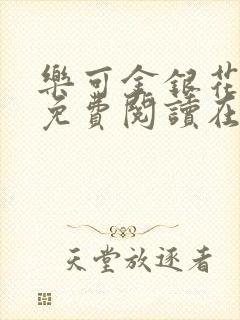 樂可金銀花
免費閱讀在
天堂放逐者